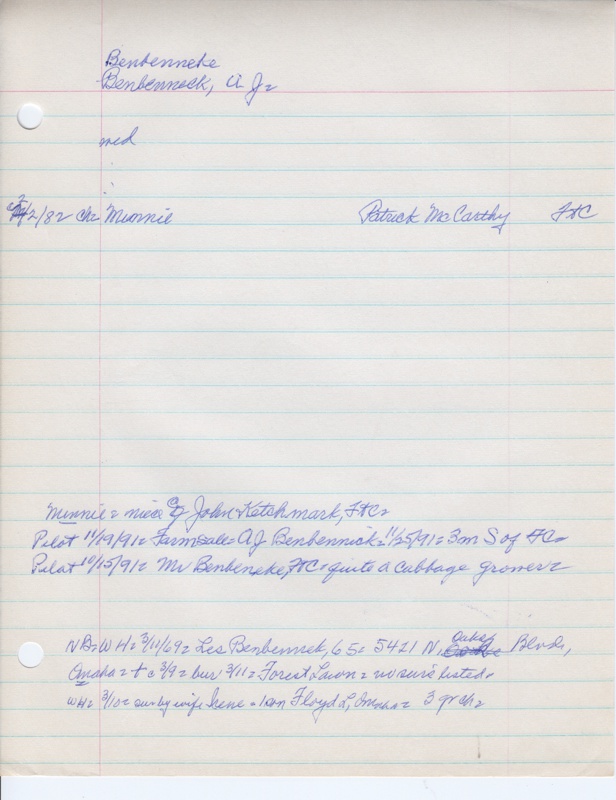 Benbenneke
Benbenneck, A J=
med
2/82 ch= Minnie Patrick McCarthy FtC
Minnie= niece of John Ketchmark, FtC=
Pilot 11/19/91= Farm sale= A J Benbennick= 11/25/91= 3m S of FC=
Pilot 10/15/91= Mr Benbeneke, FtC= quite a cabbage grower=
NB= WH= 3/11/69= Les Benbennek, 65= 5421 N. Blvd,
Omaha= + c 3/9= bur 3/11= Forest Lawn= no surs listed=
WH= 3/10= sur by wife Irene= son Floyd L, Omaha= 3 gr ch=